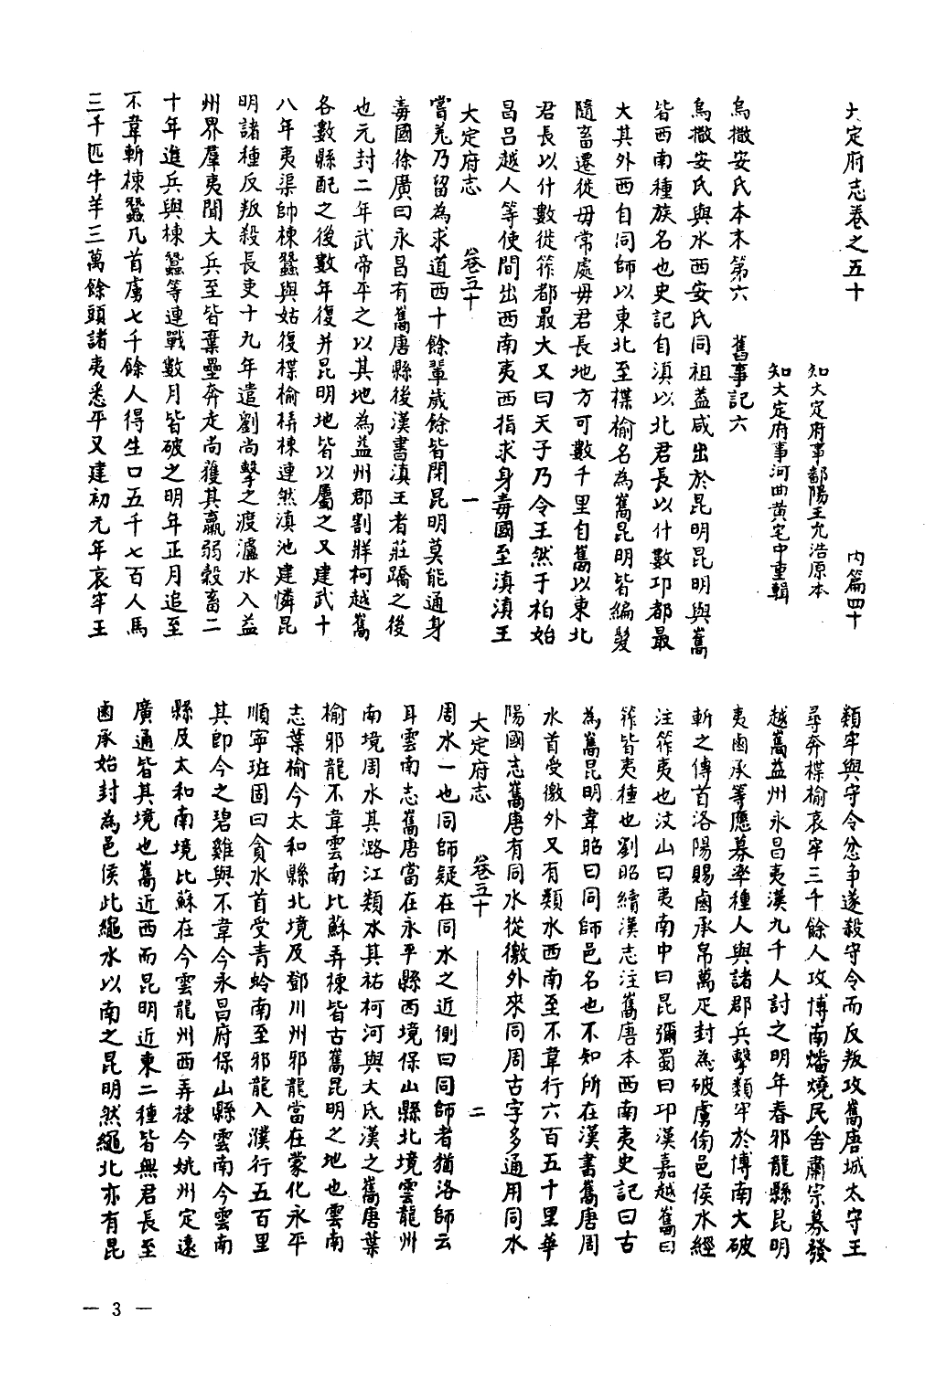 大定府志卷之五十
內篇四十
知大定府事鄱陽王允浩原本
知大定府事河曲黃宅中重輯
烏撒安氏本末第六　舊事記六
烏撒安氏與水西安氏同祖蓋咸出於昆明昆明與嶲
皆西南種族名也史記自滇以北君長以什數邛都最
大其外西自同師以東北至楪榆名為嶲昆明皆編髮
隨畜遷徙毋常處毋君長地方可數千里自嶲以東北
君長以什數徙筰都最大又曰天子乃令王然于柏始
昌呂越人等使間出西南夷西指求身毒國至滇滇王
大定府志　卷五十　一
嘗羌乃留為求道西十餘輩歲餘皆閉昆明莫能通身
毒國徐廣曰永昌有嶲唐縣後漢書滇王者莊蹻之後
也元封二年武帝平之以其地為益州郡割牂柯越嶲
各數縣配之後數年復并昆明地皆以屬之又建武十
八年夷渠帥棟蠶與姑復楪榆梇棟連然滇池建憐昆
明諸種反叛殺長吏十九年遣劉尚擊之渡瀘水入益
州界羣夷聞大兵至皆棄壘奔走尚獲其羸弱穀畜二
十年進兵與棟蠶等連戰數月皆破之明年正月追至
不韋斬棟蠶凡首虜七千餘人得生口五千七百人馬
三千匹牛羊三萬餘頭諸夷悉平又建初元年哀牢王
類牢與守令忿爭遂殺守令而反叛攻嶲唐城太守王
尋奔楪榆哀牢三千餘人攻博南燔燒民舍肅宗募發
越嶲益州永昌夷漢九千人討之明年春邪龍縣昆明
夷鹵承等應募率種人與諸郡兵擊類牢於博南大破
斬之傳首洛陽賜鹵承帛萬疋封為破虜傍邑侯水經
注筰夷也汶山曰夷南中曰昆彌蜀曰邛漢嘉越嶲曰
筰皆夷種也劉昭續漢志注嶲唐本西南夷史記曰古
為嶲昆明韋昭曰同師邑名也不知所在漢書嶲唐周
水首受徼外又有類水西南至不韋行六百五十里華
陽國志嶲唐有同水從徼外來同周古字多通用同水
大定府志　卷五十　二
周水一也同師疑在同水之近側曰同師者猶洛師云
耳雲南志嶲唐當在永平縣西境保山縣北境雲龍州
南境周水其潞江類水其祐柯河與大氐漢之嶲唐葉
榆邪龍不韋雲南比蘇弄棟皆古嶲昆明之地也雲南
志葉榆今太和縣北境及鄧川州邪龍當在蒙化永平
順寧班固曰貪水首受青蛉南至邪龍入濮行五百里
其卽今之碧雞與不韋今永昌府保山縣雲南今雲南
縣及太和南境比蘇在今雲龍州西弄棟今姚州定遠
廣通皆其境也嶲近西而昆明近東二種皆無君長至
鹵承始封為邑侯此繩水以南之昆明然繩北亦有昆
— 3 —